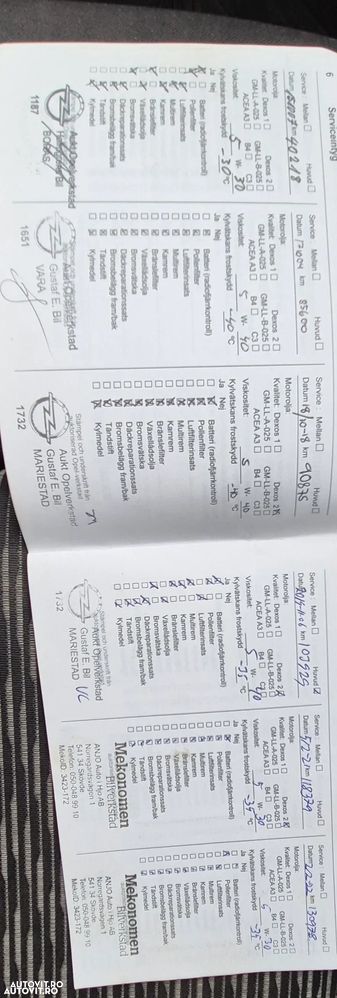 6
Serviceintyg
Service Mellan ☐ Huvud ☐
Datum km 40218
Motorolja
Kvalitet: Dexos 1 ☐ Dexos 2 ☐
GM-LL-A-025 ☐ GM-LL-B-025 ☐
ACEA A3 ☐ B4 ☐ C3 ☐
Viskositet: 5 W- 30
Kylvätskans frostskydd -30 °C
Ja Nej
Batteri (radiofjärrkontroll)
Pollenfilter
Luftfilterinsats
Multirem
Kamrem
Bränslefilter
Växellådsolja
Bromsvätska
Däckreparationssats
Bromsbelägg fram/bak
Tändstift
Kylmedel
Aukt Opelverkstad
Gustaf E. Bil
1187
Service Mellan ☐ Huvud ☐
Datum 171004 km 85600
Motorolja
Kvalitet: Dexos 1 ☐ Dexos 2 ☐
GM-LL-A-025 ☐ GM-LL-B-025 ☐
ACEA A3 ☐ B4 ☐ C3 ☐
Viskositet: 5 W- 40
Kylvätskans frostskydd -40 °C
Ja Nej
Batteri (radiofjärrkontroll)
Pollenfilter
Luftfilterinsats
Multirem
Kamrem
Bränslefilter
Växellådsolja
Bromsvätska
Däckreparationssats
Bromsbelägg fram/bak
Tändstift
Kylmedel
Aukt Opelverkstad
Gustaf E. Bil
VARA
1651
Service Mellan ☐ Huvud ☐
Datum 18/10-18 km 90875
Motorolja
Kvalitet: Dexos 1 ☐ Dexos 2 ☒
GM-LL-A-025 ☐ GM-LL-B-025 ☐
ACEA A3 ☐ B4 ☐ C3 ☐
Viskositet: 5 W- 40
Kylvätskans frostskydd -40 °C
Ja Nej
Batteri (radiofjärrkontroll)
Pollenfilter
Luftfilterinsats
Multirem
Kamrem
Bränslefilter
Växellådsolja
Bromsvätska
Däckreparationssats
Bromsbelägg fram/bak
Tändstift
Kylmedel
Stämpel och underskrift från
auktoriserad Opel-verkstad
Aukt Opelverkstad
Gustaf E. Bil
MARIESTAD
1732
Service Mellan ☐ Huvud ☒
Datum km
Motorolja
Kvalitet: Dexos 1 ☐ Dexos 2 ☒
GM-LL-A-025 ☐ GM-LL-B-025 ☐
ACEA A3 ☐ B4 ☐ C3 ☐
Viskositet: 5 W- 40
Kylvätskans frostskydd -35 °C
Ja Nej
Batteri (radiofjärrkontroll)
Pollenfilter
Luftfilterinsats
Multirem
Kamrem
Bränslefilter
Växellådsolja
Bromsvätska
Däckreparationssats
Bromsbelägg fram/bak
Tändstift
Kylmedel
Aukt Opelverkstad
Gustaf E. Bil
MARIESTAD
1732
Service Mellan ☐ Huvud ☐
Datum 5/2-21 km 118374
Motorolja
Kvalitet: Dexos 1 ☐ Dexos 2 ☒
GM-LL-A-025 ☐ GM-LL-B-025 ☐
ACEA A3 ☐ B4 ☐ C3 ☐
Viskositet: 5 W- 30
Kylvätskans frostskydd -35 °C
Ja Nej
Batteri (radiofjärrkontroll)
Pollenfilter
Luftfilterinsats
Multirem
Kamrem
Bränslefilter
Växellådsolja
Bromsvätska
Däckreparationssats
Bromsbelägg fram/bak
Tändstift
Kylmedel
Mekonomen
Bilverkstad
ANJO Auto Hp AB
Nunnegårdsvägen 1
541 34 Skövde
Telefon: 050-048 99 10
MekoID: 3423-172
Service Mellan ☐ Huvud ☐
Datum km 130978
Motorolja
Kvalitet: Dexos 1 ☐ Dexos 2 ☐
GM-LL-A-025 ☐ GM-LL-B-025 ☐
ACEA A3 ☐ B4 ☐ C3 ☐
Viskositet: 5 W- 30
Kylvätskans frostskydd °C
Ja Nej
Batteri (radiofjärrkontroll)
Pollenfilter
Luftfilterinsats
Multirem
Kamrem
Bränslefilter
Växellådsolja
Bromsvätska
Däckreparationssats
Bromsbelägg fram/bak
Tändstift
Kylmedel
Mekonomen
Bilverkstad
ANJO Auto Hp AB
Nunnegårdsvägen 1
541 34 Skövde
Telefon: 050-048 99 10
MekoID: 3423-172
AUTOVIT.RO
AUTOVIT.RO